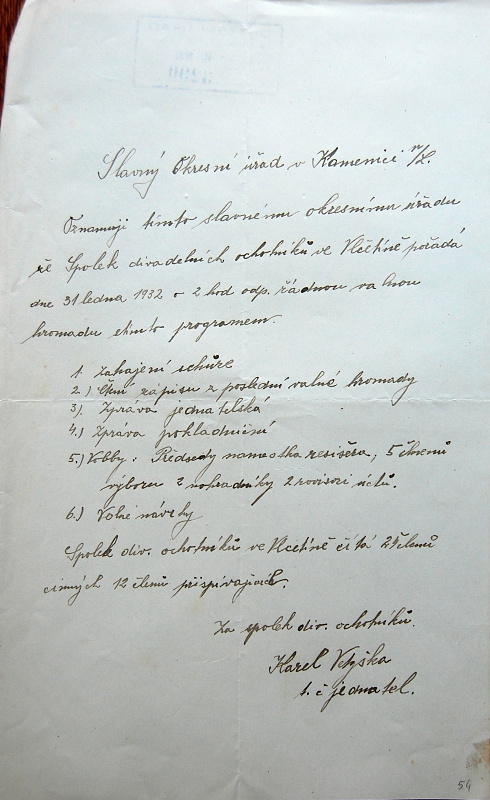 Slavný Okresní úřad v Kamenici n/L.
Oznamuji tímto slavnému okresnímu úřadu
že Spolek divadelních ochotníků ve Vlčetíně pořádá
dne 31 ledna 1932 o 2 hod odp. řádnou valnou
hromadu s tímto programem.
1. Zahájení schůze
2.) Čtní zápisu z poslední valné hromady
3). Zpráva jednatelská
4.) Zpráva pokladniční
5.) Volby: Předsedy namastka resiséra, 5 členů
výboru 2 nahradníky 2 revisori učtů.
6.) Volné návrhy
Spolek div. ochotníků ve Vlčetíně čítá členů
činných 12 členů přispívajicič.
Za spolek div. ochotníků.
Karel
t. č jednatel.
54